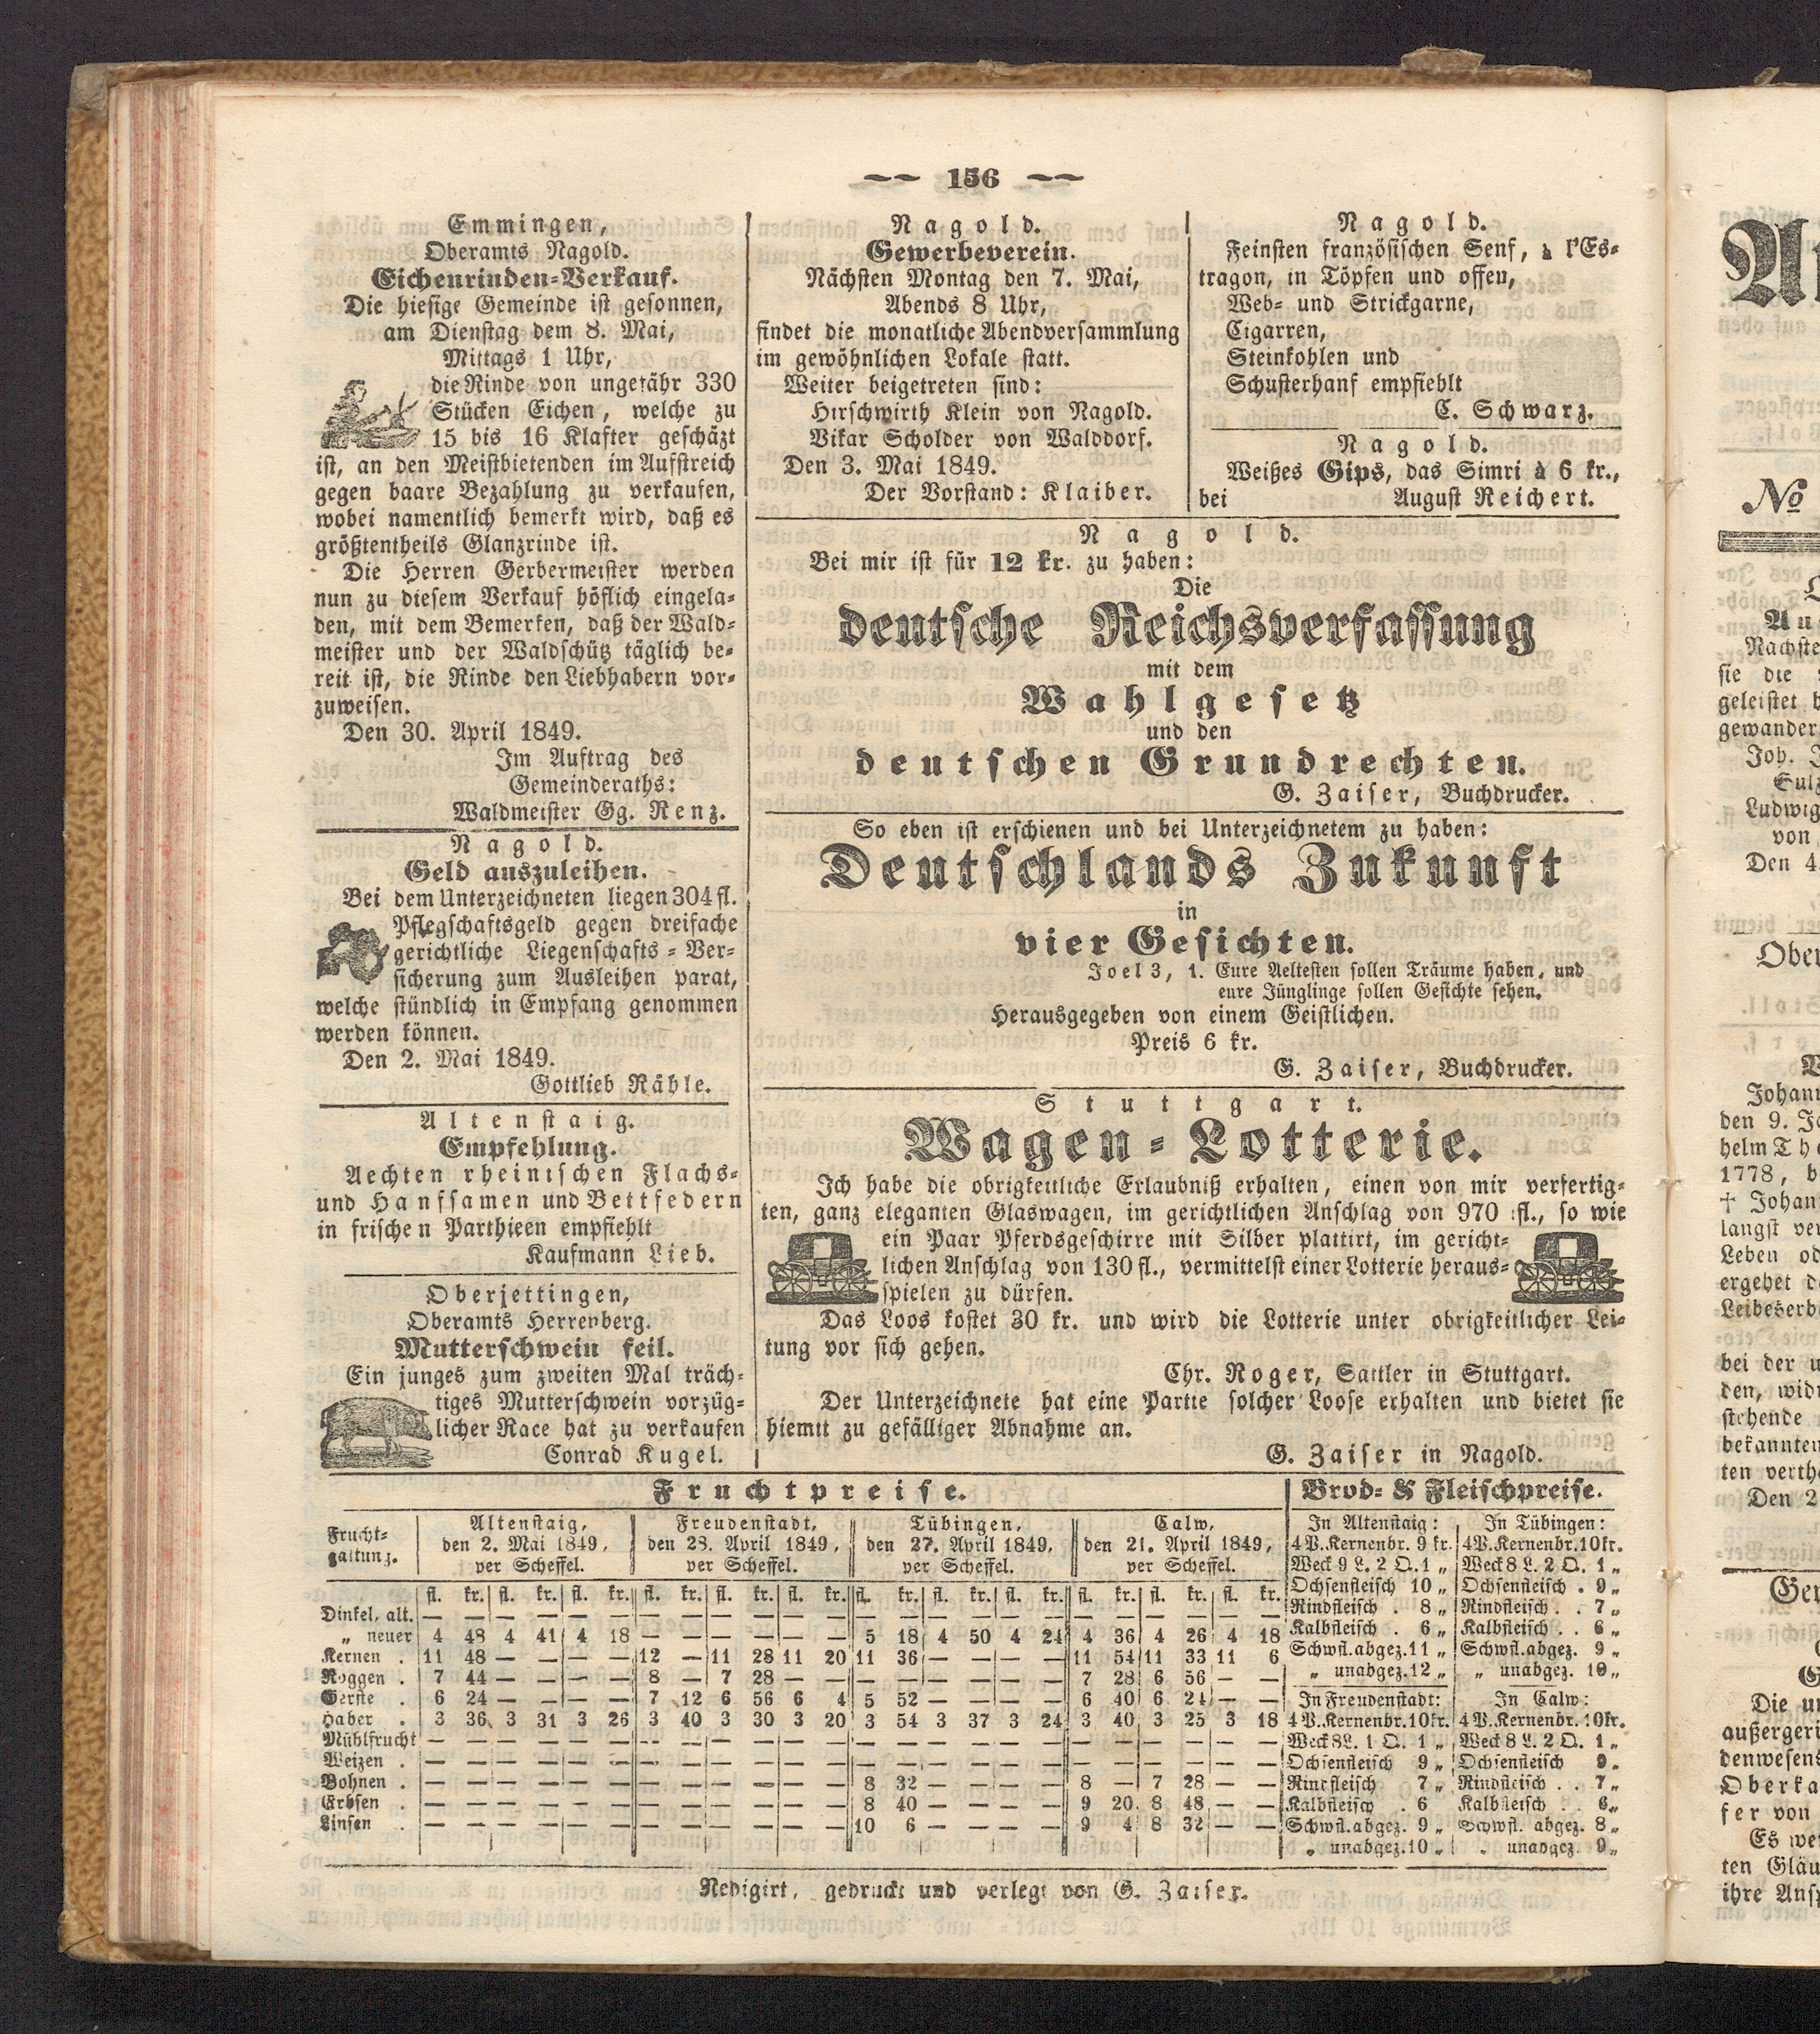 156
Emmingen,
Oberamts Nagold.
Eichenrinden-Verkauf.
Die hiesige Gemeinde ist gesonnen,
am Dienstag dem 8. Mai,
Mittags 1 Uhr,
die Rinde von ungefähr 330
Stücken Eichen, welche zu
15 bis 16 Klafter geschäzt
ist, an den Meistbietenden im Aufstreich
gegen baare Bezahlung zu verkaufen,
wobei namentlich bemerkt wird, daß es
größtentheils Glanzrinde ist.
Die Herren Gerbermeister werden
nun zu diesem Verkauf höflich eingela-
den, mit dem Bemerken, daß der Wald-
meister und der Waldschütz täglich be-
reit ist, die Rinde den Liebhabern vor-
zuweisen.
Den 30. April 1849.
Im Auftrag des
Gemeinderaths:
Waldmeister Gg. Renz.
Nagold.
Geld auszuleihen.
Bei dem Unterzeichneten liegen 304 fl.
Pflegschaftsgeld gegen dreifache
gerichtliche Liegenschafts-Ver-
sicherung zum Ausleihen parat,
welche stündlich in Empfang genommen
werden können.
Den 2. Mai 1849.
Gottlieb Rähle.
Altenstaig.
Empfehlung.
Aechten rheinischen Flachs-
und Hanfsamen und Bettfedern
in frischen Parthieen empfiehlt
Kaufmann Lieb.
Oberjettingen,
Oberamts Herrenberg.
Mutterschwein feil.
Ein junges zum zweiten Mal träch-
tiges Mutterschwein vorzüg-
licher Race hat zu verkaufen
Conrad Kugel.
Nagold.
Gewerbeverein.
Nächsten Montag den 7. Mai,
Abends 8 Uhr,
findet die monatliche Abendversammlung
im gewöhnlichen Lokale statt.
Weiter beigetreten sind:
Hirschwirth Klein von Nagold.
Vikar Scholder von Walddorf.
Den 3. Mai 1849.
Der Vorstand: Klaiber.
Nagold.
Feinsten französischen Senf, à l'Es-
tragon, in Töpfen und offen,
Web- und Strickgarne,
Cigarren,
Steinkohlen und
Schusterhanf empfiehlt
C. Schwarz.
Nagold.
Weißes Gips, das Simri à 6 kr.,
bei August Reichert.
Nagold.
Bei mir ist für 12 kr. zu haben:
Die
deutsche Reichsverfassung
mit dem
Wahlgesetz
und den
deutschen Grundrechten.
G. Zaiser, Buchdrucker.
So eben ist erschienen und bei Unterzeichnetem zu haben:
Deutschlands Zukunft
in
vier Gesichten.
Joel 3, 1. Eure Aeltesten sollen Träume haben, und
eure Jünglinge sollen Gesichte sehen.
Herausgegeben von einem Geistlichen.
Preis 6 kr.
G. Zaiser, Buchdrucker.
Stuttgart.
Wagen-Lotterie.
Ich habe die obrigkeitliche Erlaubniß erhalten, einen von mir verfertig-
ten, ganz eleganten Glaswagen, im gerichtlichen Anschlag von 970 fl., so wie
ein Paar Pferdsgeschirre mit Silber plattirt, im gericht-
lichen Anschlag von 130 fl., vermittelst einer Lotterie heraus-
spielen zu dürfen.
Das Loos kostet 30 kr. und wird die Lotterie unter obrigkeitlicher Lei-
tung vor sich gehen.
Chr. Roger, Sattler in Stuttgart.
Der Unterzeichnete hat eine Partie solcher Loose erhalten und bietet sie
hiemit zu gefälliger Abnahme an.
G. Zaiser in Nagold.
Fruchtpreise.
Frucht-
gattung.
Altenstaig, den 2. Mai 1849, per Scheffel.
Freudenstadt, den 28. April 1849, per Scheffel.
Tübingen, den 27. April 1849, per Scheffel.
Calw, den 21. April 1849, per Scheffel.
fl. kr. fl. kr. fl. kr. fl. kr. fl. kr. fl. kr. fl. kr. fl. kr. fl. kr. fl. kr. fl. kr. fl. kr.
Dinkel, alt. — — — — — — — — — — — — — — — — — — — — — — — —
„ neuer 4 48 4 41 4 18 — — — — — — 5 18 4 50 4 24 4 36 4 26 4 18
Kernen . 11 48 — — — — 12 — 11 28 11 20 11 36 — — — — 11 54 11 33 11 6
Roggen . 7 44 — — — — 8 — 7 28 — — — — — — — — 7 28 6 56 — —
Gerste . 6 24 — — — — 7 12 6 56 6 4 5 52 — — — — 6 40 6 24 — —
Haber . 3 36 3 31 3 26 3 40 3 30 3 20 3 54 3 37 3 24 3 40 3 25 3 18
Mühlfrucht — — — — — — — — — — — — — — — — — — — — — — — —
Weizen . — — — — — — — — — — — — — — — — — — — — — — — —
Bohnen . — — — — — — — — — — — — 8 32 — — — — 8 — 7 28 — —
Erbsen . — — — — — — — — — — — — 8 40 — — — — 9 20 8 48 — —
Linsen . — — — — — — — — — — — — 10 6 — — — — 9 4 8 32 — —
Brod- & Fleischpreise.
In Altenstaig:
4 P. Kernenbr. 9 kr.
Weck 9 L. 2 Q. 1 „
Ochsenfleisch 10 „
Rindfleisch . 8 „
Kalbfleisch . 6 „
Schwfl. abgez. 11 „
„ unabgez. 12 „
In Tübingen:
4 P. Kernenbr. 10 kr.
Weck 8 L. 2 Q. 1 „
Ochsenfleisch . 9 „
Rindfleisch . . 7 „
Kalbfleisch . . 6 „
Schwfl. abgez. 9 „
„ unabgez. 10 „
In Freudenstadt:
4 P. Kernenbr. 10 kr.
Weck 8 L. 1 Q. 1 „
Ochsenfleisch 9 „
Rindfleisch 7 „
Kalbfleisch . 6
Schwfl. abgez. 9 „
„ unabgez. 10 „
In Calw:
4 P. Kernenbr. 10 kr.
Weck 8 L. 2 Q. 1 „
Ochsenfleisch 9 „
Rindfleisch . . 7 „
Kalbfleisch . . 6 „
Schwfl. abgez. 8 „
„ unabgez. 9 „
Redigirt, gedruckt und verlegt von G. Zaiser.
No
Nächste
sie die
geleistet
gewander
Joh.
Sulz
Ludwig
von
Den 4.
Ober
Johann
den 9.
helm
1778,
† Johan
langst
Leben
ergehet
Leibeserb
bei der
den,
stehende
bekannten
ten
Den 2
Die
außergeri
denwesens
Oberka
fer von
Es
ten Gläu
ihre